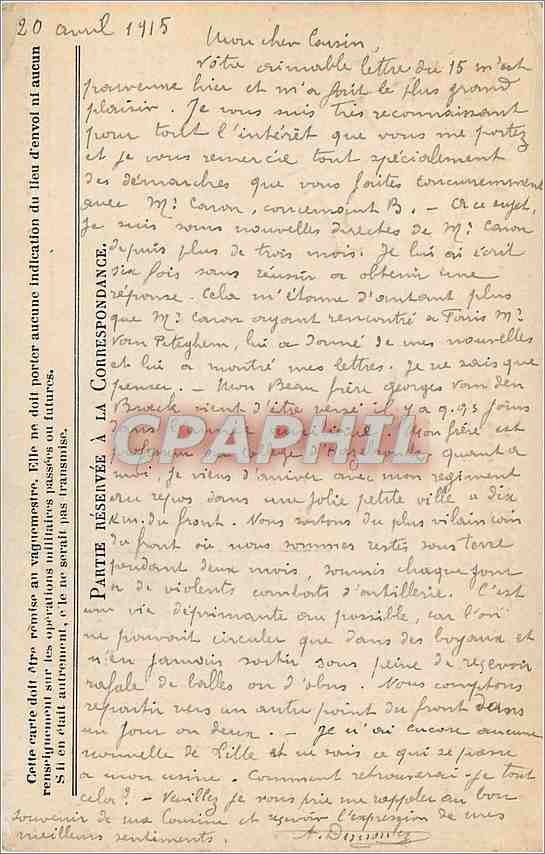 20 avril 1915
Mon cher Cousin,
Votre aimable lettre du 15 m'est
parvenue hier et m'a fait le plus grand
plaisir. Je vous suis très reconnaissant
pour tout l'intérêt que vous me portez
et je vous remercie tout spécialement
des démarches que vous faites concurremment
avec Mr. Caron, concernant B. - A ce sujet,
je suis sans nouvelles directes de Mr. Caron
depuis plus de trois mois. Je lui ai écrit
six fois sans réussir à obtenir une
réponse. Cela m'étonne d'autant plus
que Mr. Caron ayant rencontré à Paris Mr.
Van Peteghem, lui a donné de mes nouvelles
et lui a montré mes lettres. Je ne sais que
penser. - Mon Beau frère Georges Van den
Broeck vient d'être versé il y a q.qs jours
dans Mon frère est
au collège d'Hazebrouck, quant à
moi, je viens d'arriver avec mon régiment
au repos dans une jolie petite ville à dix
Km. du front. Nous sortons du plus vilain coin
du front où nous sommes restés sous terre
pendant deux mois, soumis chaque jour
à de violents combats d'artillerie. C'est
une vie déprimante au possible, car l'on
ne pouvait circuler que dans des boyaux et
n'en jamais sortir sous peine de recevoir
rafale de balles ou d'obus. Nous comptons
repartir vers un autre point du front dans
un jour ou deux. - Je n'ai encore aucune
nouvelle de Lille et ne sais ce qui se passe
à mon usine. Comment retrouverai-je tout
cela? - Veuillez je vous prie me rappeler au bon
souvenir de ma Cousine et recevoir l'expression de mes
meilleurs sentiments.
A.
PARTIE RÉSERVÉE À LA CORRESPONDANCE.
Cette carte doit être remise au vaguemestre. Elle ne doit porter aucune indication du lieu d'envoi ni aucun
renseignement sur les opérations militaires passées ou futures.
S'il en était autrement, elle ne serait pas transmise.
CPAPHIL